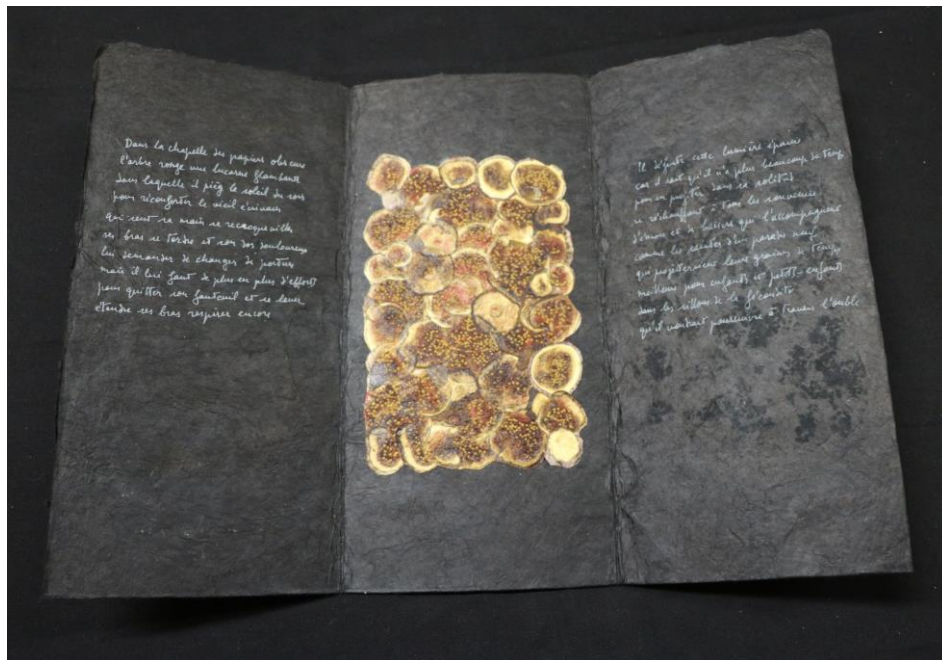 Dans la chapelle des papiers obscure
l'arbre ronge une lucarne flambante
dans laquelle il piège le soleil du soir
pour réconforter le vieil écrivain
qui sent sa main se recroqueviller
ses bras se tordre et son dos douloureux
lui demander de changer de posture
mais il lui faut de plus en plus d'efforts
pour quitter son fauteuil et se lever
étendre ses bras respirer encore
Il déguste cette lumière épaisse
car il sait qu'il n'a plus beaucoup de temps
pour en profiter dans sa solitude
se réchauffant à tous les souvenirs
d'amour et de lecture qui l'accompagnent
comme les entrées d'un paradis neuf
qui projetteraient leurs grains de temps
meilleurs pour enfants et petits-enfants
dans les sillons de la fécondité
qu'il voudrait poursuivre à travers l'oubli